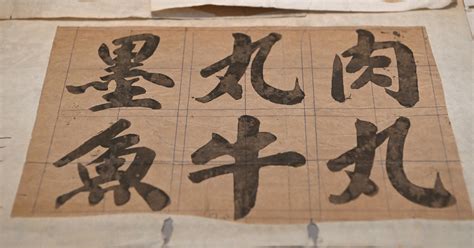 墨魚
丸牛
肉丸